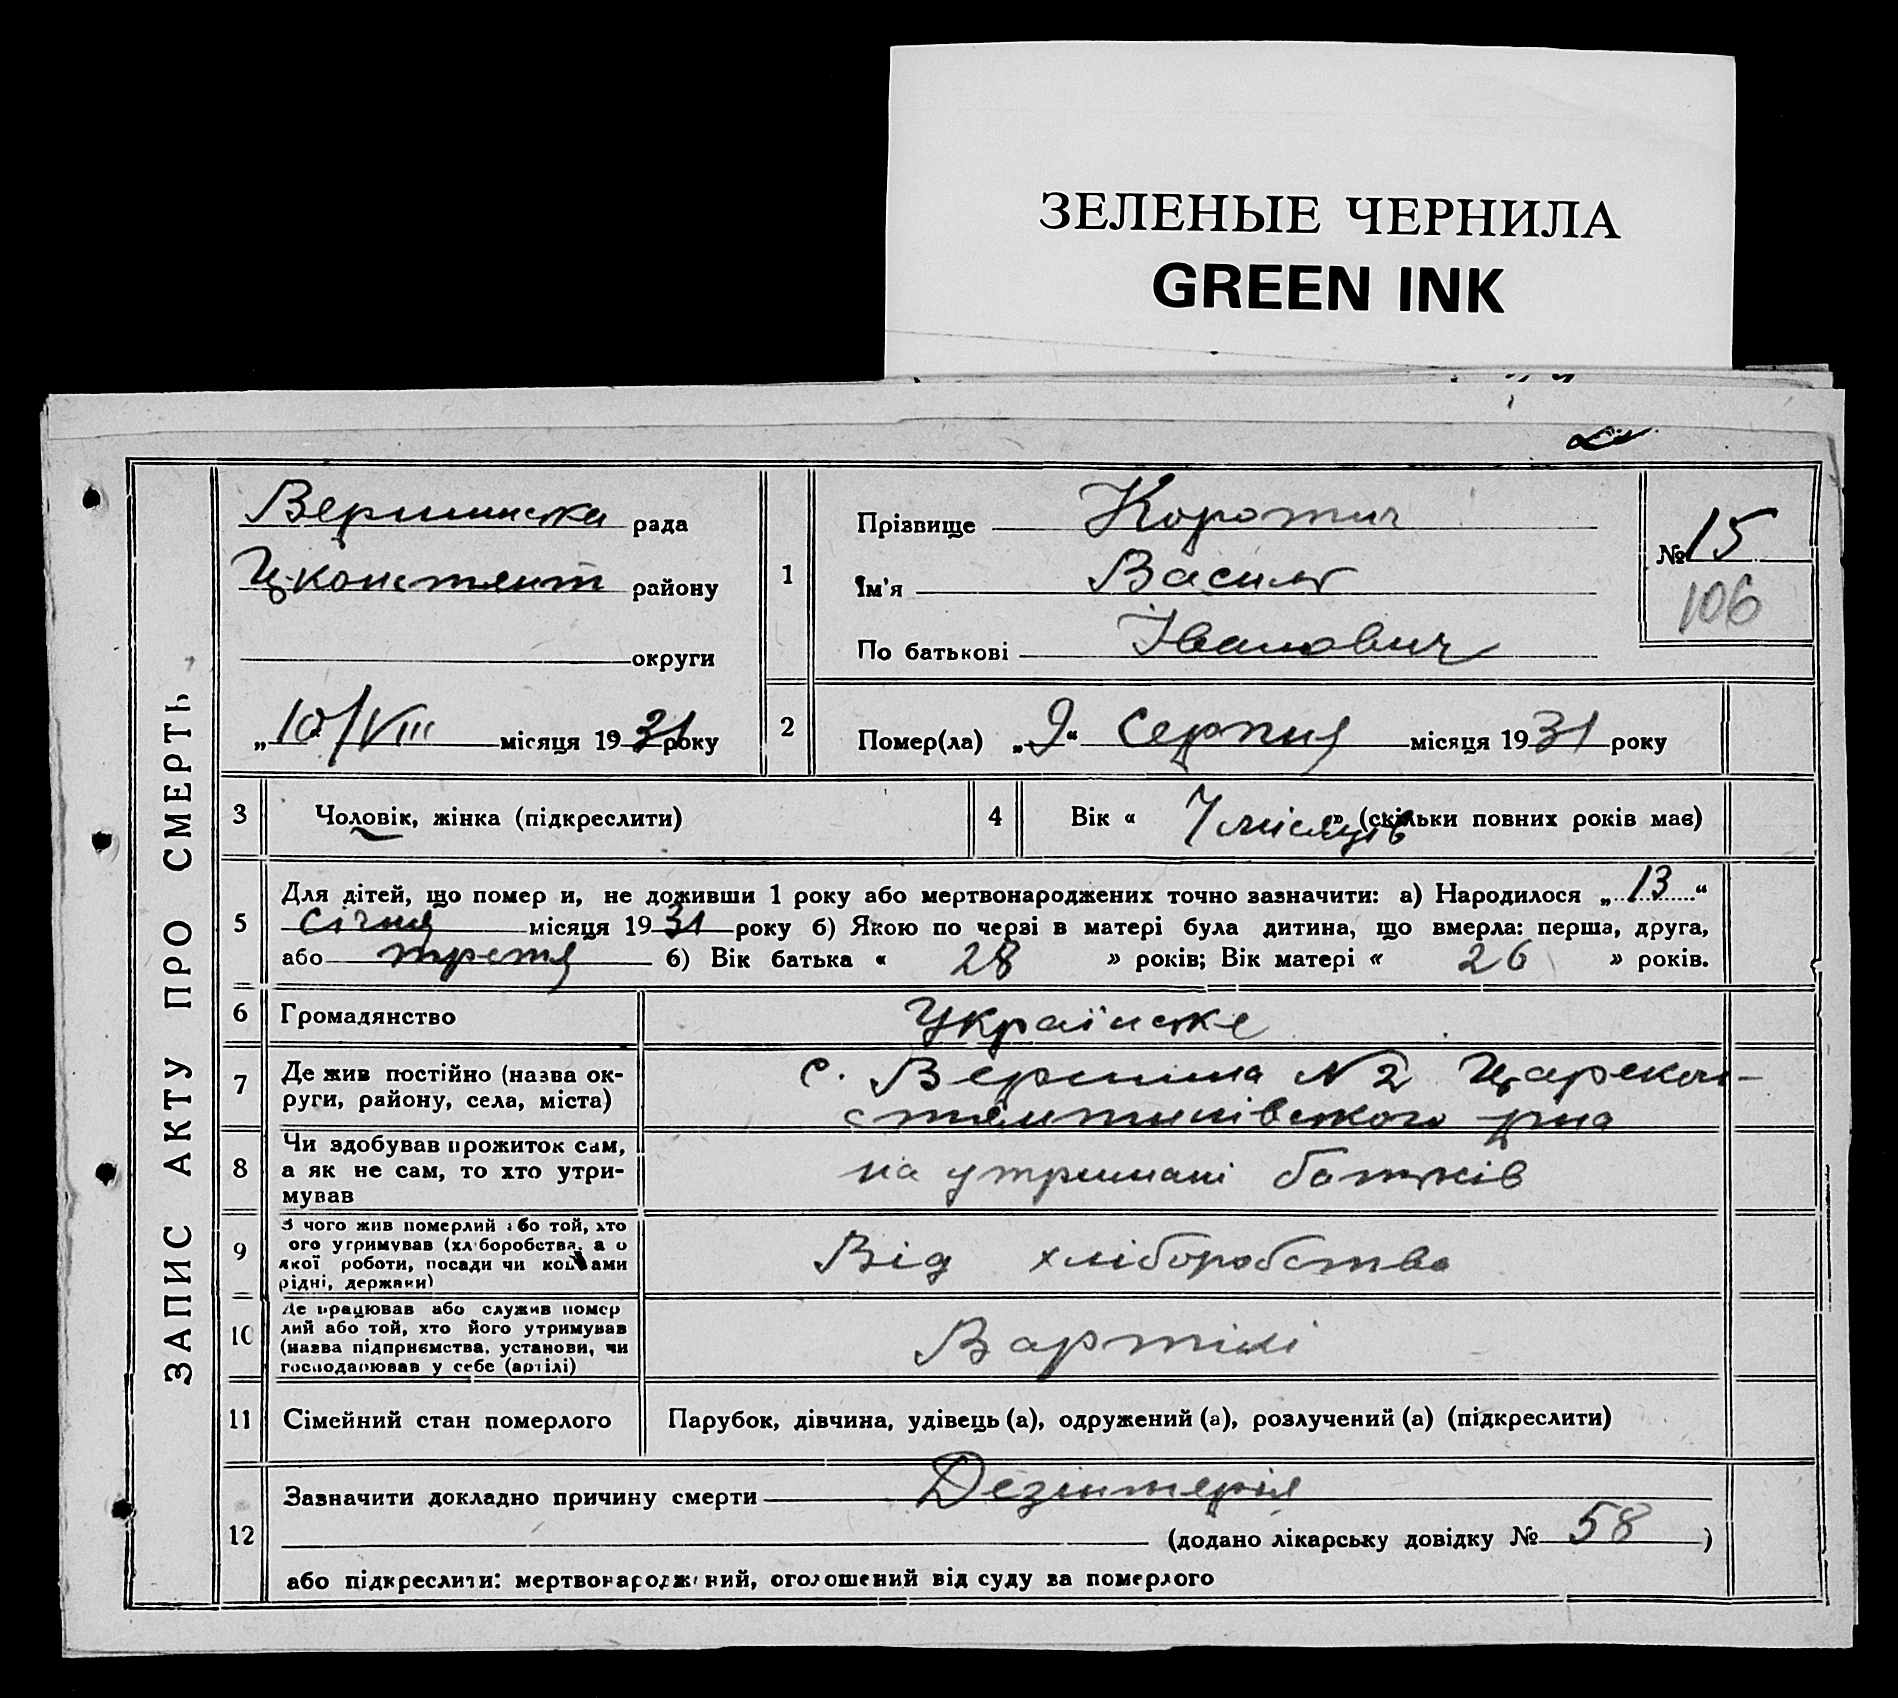 ЗЕЛЕНЫЕ ЧЕРНИЛА
GREEN INK
ЗАПИС АКТУ ПРО СМЕРТЬ
Вершинська рада
Ц-констянт району
округи
„10/VIII місяця 1931 року
1
Прізвище Коротич
Ім'я Василь
По батькові Іванович
№ 15
106
2
Помер(ла) „9“ серпня місяця 1931 року
3
Чоловік, жінка (підкреслити)
4
Вік « 7 місяців » (скільки повних років має)
5
Для дітей, що помер и, не доживши 1 року або мертвонароджених точно зазначити: а) Народилося „13“
січня місяця 1931 року б) Якою по черві в матері була дитина, що вмерла: перша, друга,
або третя 6) Вік батька « 28 » років; Вік матері « 26 » років.
6
Громадянство
Українське
7
Де жив постійно (назва ок-
руги, району, села, міста)
с. Вершина №2 Царекон-
стянтинівського р-на
8
Чи здобував прожиток сам,
а як не сам, то хто утри-
мував
на утримані батьків
9
З чого жив померлий або той, хто
ого утримував (хліборобства, а о
якої роботи, посади чи коштами
рідні, держави)
Від хліборобства
10
Де працював або служив помер
лий або той, хто його утримував
(назва підприємства, установи, чи
господарював у себе (артілі)
В артілі
11
Сімейний стан померлого
Парубок, дівчина, удівець (а), одружений (а), розлучений (а) (підкреслити)
12
Зазначити докладно причину смерти Дезінтерія
(додано лікарську довідку № 58 )
або підкреслити: мертвонароджений, оголошений від суду за померлого